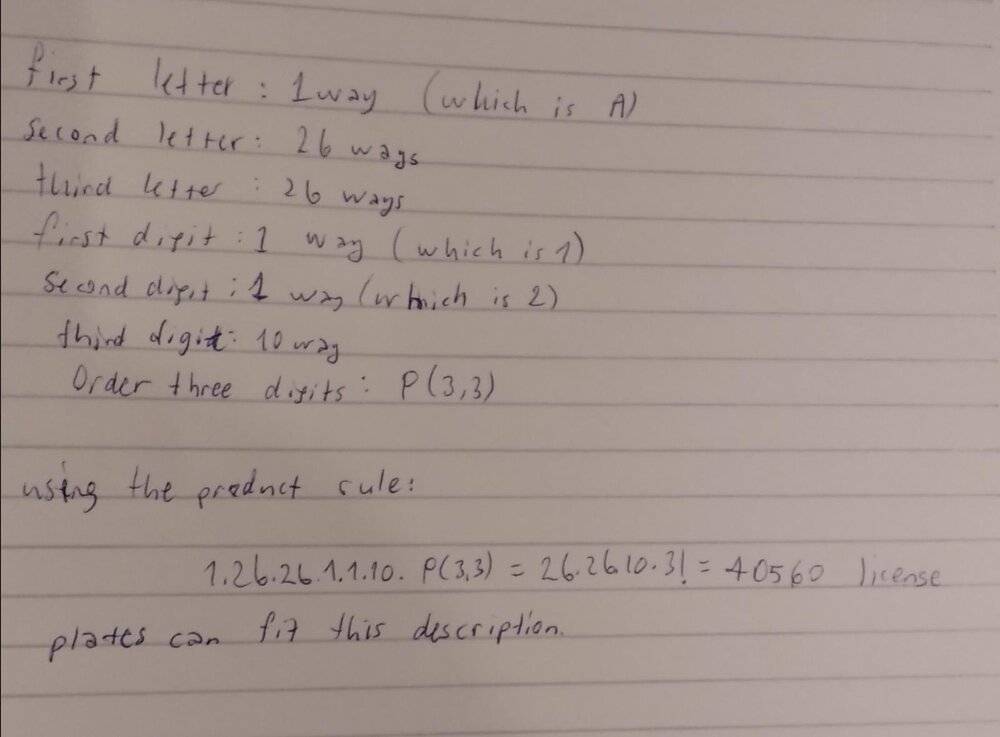 first letter : 1 way (which is A)
second letter : 26 ways
third letter : 26 ways
first digit : 1 way (which is 1)
second digit : 1 way (which is 2)
third digit : 10 way
Order three digits : P(3,3)
using the product rule:
1.26.26.1.1.10. P(3,3) = 26.26.10.3! = 40560 license
plates can fit this description.